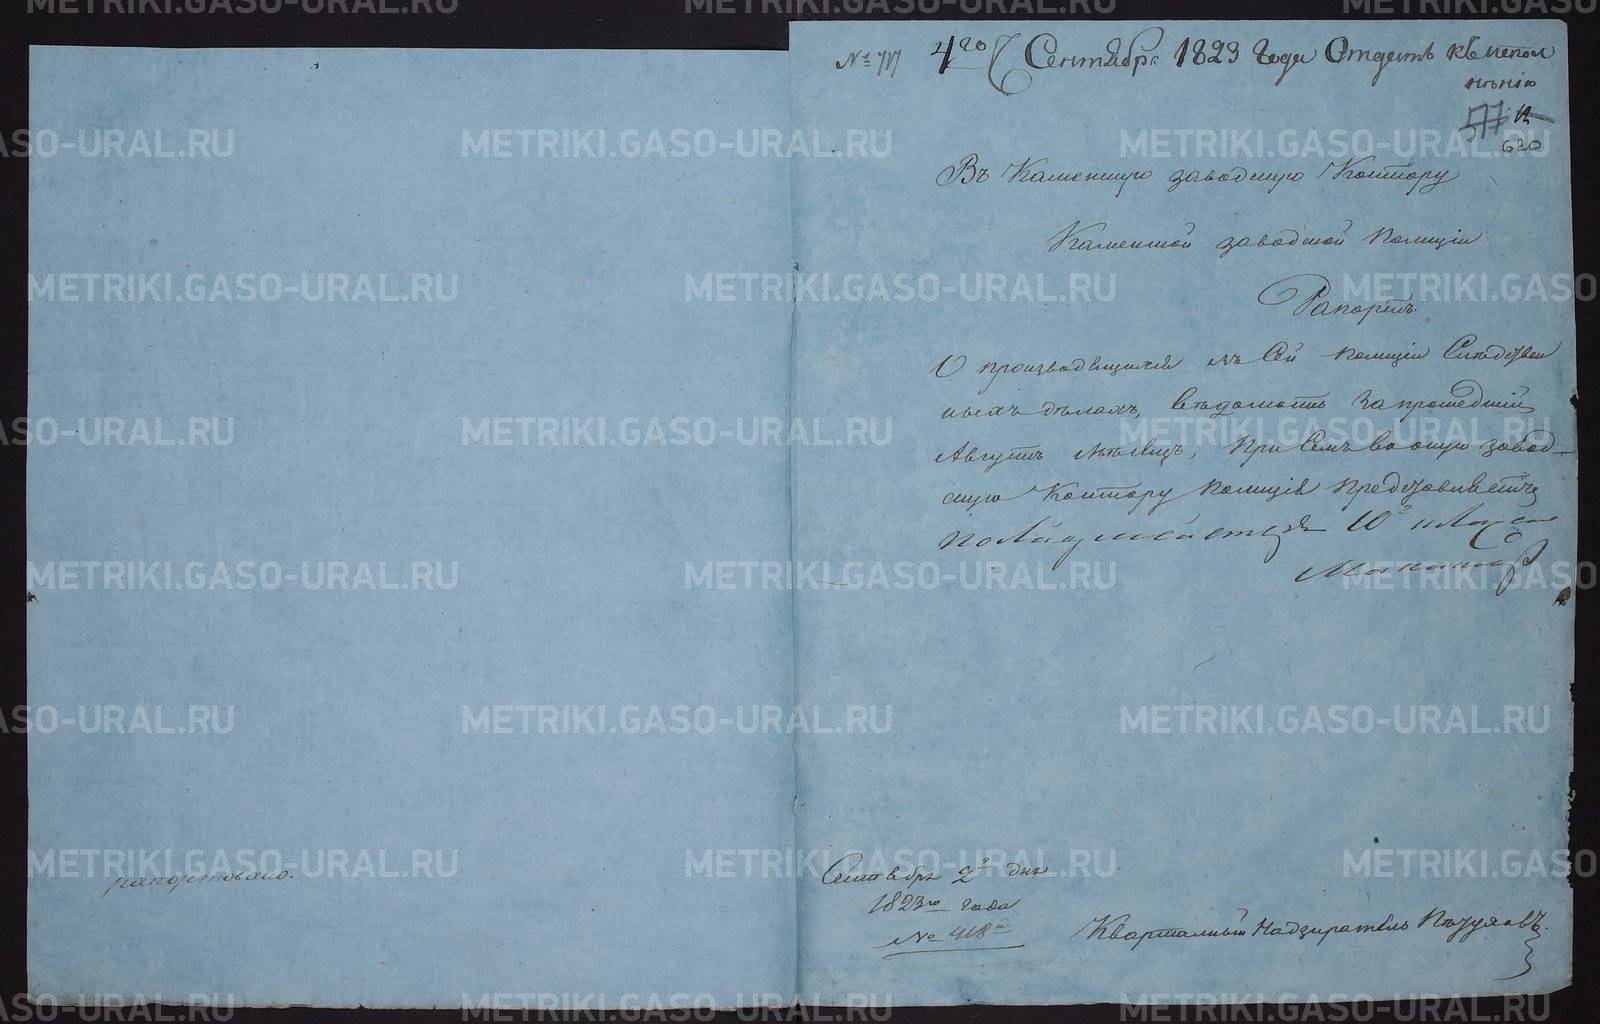 4го Сентября 1823 года Отдать къ испол
ненію
577
620
Въ Каменскую заводскую Контору
Каменской заводской полиціи
Рапортъ
О производящихся въ Сей полиціи Следствен
ныхъ делахъ, ведомость за прошедший
Августъ месяцъ, при Семъ во оную завод-
скую Контору полиція представляетъ
полицмейстеръ
Сентября 2го дня
1823го года
№ 418й
Квартальный Надзиратель
рапортовано.
METRIKI.GASO-URAL.RU